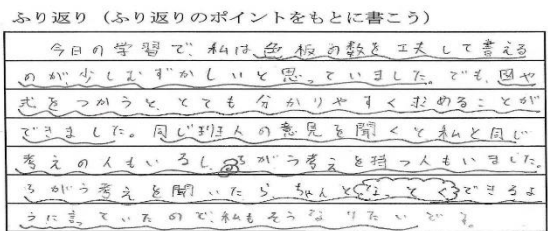 ふり返り（ふり返りのポイントをもとに書こう）
今日の学習で、私は色板の数を工夫して言える
のが、少しむずかしいと思っていました。でも、図や
式をつかうと、とても分かりやすく求めることが
できました。同じ班人の意見を聞くと私と同じ
考えの人もいるし、ちがう考えを持つ人もいました。
ちがう考えを聞いたら、ちゃんとなっとくできるよ
うに言っていたので、私もそうなりたいです。